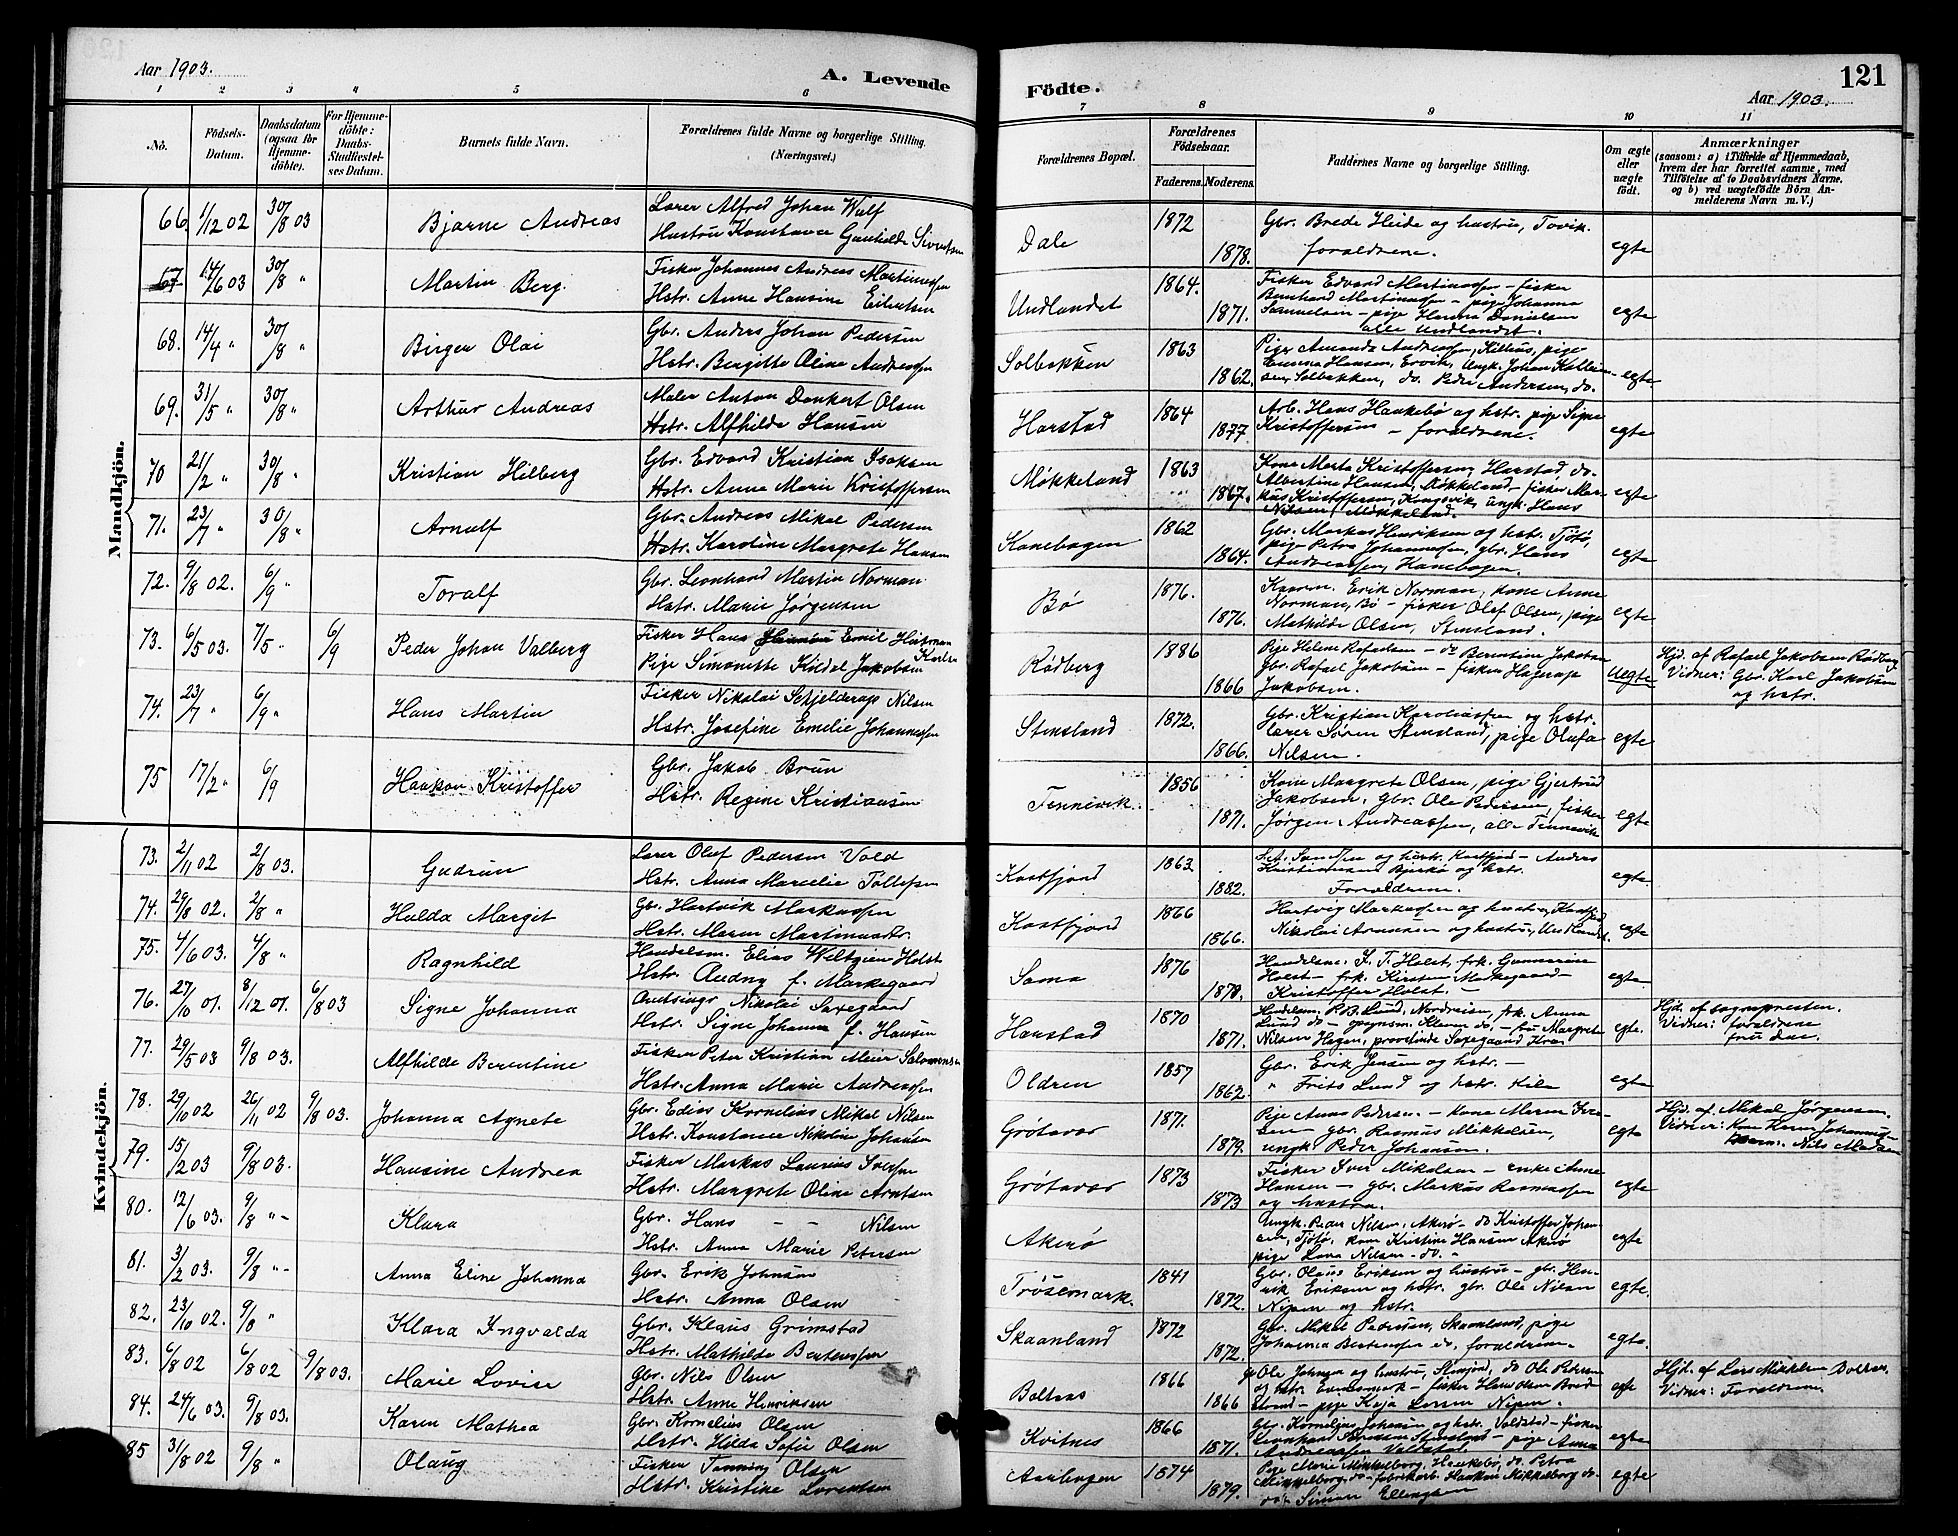 Aar 1903.
A. Levende
1 2 3 4 5 6
No.
Födsels-Datum.
Daabsdatum (ogsaa for Hjemme-döbte).
For Hjemme-döbte: Daabs-Stadfæstel-ses Datum.
Barnets fulde Navn.
Forældrenes fulde Navne og borgerlige Stilling. (Næringsvei.)
Mandkjön.
66. 1/12 02 30/8 03 Bjarne Andreas Lærer Alfred Johan Wulf
Hustru Konstance Gunhilde Sivertsen
67 14/6 03 30/8 " Martin Berg. Fisker Johannes Andreas Martinussen
Hstr. Anne Hansine Eilertsen
68. 14/4 " 30/8 " Birger Olai Gbr. Anders Johan Pedersen
Hstr. Bergitte Oline Andreassen
69. 31/5 " 30/8 " Arthur Andreas Maler Anton Dankert Olsen
Hstr. Alfhilde Hansen
70 21/2 " 30/8 " Kristian Hilberg Gbr. Edvard Kristian Isaksen
Hstr. Anne Marie Kristoffersen
71. 23/7 " 30/8 " Arnulf Gbr. Andreas Mikal Pedersen
Hstr. Karoline Margrete Hansen
72. 9/8 02. 6/9 " Toralf Gbr. Leonhard Martin Norman.
Hstr. Marie Jørgensen
73. 6/5 03. 7/5 " 6/9 Peder Johan Valberg Fisker Hans Emil Karlsen
Pige Simonette Kildal Jakobsen
74. 23/7 " 6/9 " Hans Martin Fisker Nikolai Schjelderup Nilsen
Hstr. Josefine Emelie Johannessen
75 17/2 " 6/9 Haakon Kristoffer Gbr. Jakob Brun
Hstr. Regine Kristiansen
Kvindekjön.
73. 2/11 02 2/8 03. Gudrun Lærer Oluf Pedersen Vold
Hstr. Anna Marcelie Tollefsen
74. 29/8 02. 2/8 " Hulda Margit Gbr. Hartvik Markussen
Hstr. Maren Martinusdtr.
75. 4/6 03. 4/8 " Ragnhild Handelsm. Elias Weltzien Holst
Hstr. Audny f. Markegaard
76. 27/10 01. 8/12 01. 6/8 03 Signe Johanna Amtsingr Nikolai Saxegaard
Hstr. Signe Johanna f. Hansen
77. 29/5 03 9/8 03. Alfhilde Berentine Fisker Peter Kristian Meier Salomonsen
Hstr. Anna Marie Andreassen
78. 29/10 02 26/11 02 9/8 03. Johanna Agnete Gbr. Edias Kornelius Mikal Nilsen
Hstr. Konstanse Nikoline Johansen
79. 15/2 03 9/8 03. Hansine Andrea Fisker Markus Laurius Iversen
Hstr. Margrete Oline Arntsen
80. 12/6 03. 9/8 "- Klara Gbr. Hans - - Nilsen
Hstr. Anna Marie Petersen
81. 3/2 03. 9/8 "- Anna Eline Johanna Gbr. Erik Johnsen
Hstr. Anna Olsen
82. 23/10 02. 9/8 " Klara Ingvalda Gbr. Klaus Grimstad
Hstr. Mathilde Berteussen
83. 6/8 02 6/8 02 9/8 03. Marie Lovise Gbr. Nils Olsen
Hstr. Anne Henriksen
84. 24/6 03. 9/8 03. Karen Mathea Gbr. Kornelius Olsen
Hstr. Hilda Sofie Olsen
85 31/8 02 9/8 " Olaug Fisker Tønning Olsen
Hstr. Kristine Lorentsen
Födte.
121
Aar 1903.
7 8 9 10 11
Forældrenes Bopæl.
Forældrenes Födselsaar.
Faderens. Moderens.
Faddernes Navne og borgerlige Stilling.
Om ægte eller uægte födt.
Anmærkninger
(saasom: a) i Tilfælde af Hjemmedaab, hvem der har forrettet samme, med Tilföielse af to Daabsvidners Navne, og b) ved uægtefödte Börn An-melderens Navn m. V.)
Dale 1872 1878. Gbr. Brede Heide og hustru, Tovik. forældrene. egte
Undlandet 1864. 1871. Fisker Edvard Martinussen - fisker
Bernhard Martinussen - pige Johanna
Samuelsen - pige Hanna Danielsen
alle Undlandet. egte
Solbakken 1863 1862. Pige Amanda Andreassen, Killeus, pige
Emma Hansen, Ervik, Ungk. Johan
Solbakken, do. Peder Andersen, do. egte
Harstad 1864 1877 Arb. Hans Haukebø og hstr. pige Signe
Kristoffersen - forældrene. egte
Møkkeland 1863 1867. Kone Marta Kristoffersen, Harstad, do.
Albertine Hansen, Møkkeland - fisker Mar-
kus Kristoffersen, Kongsvik, ungk. Hans
Nilsen, Møkkeland. egte
Kanebogen 1862 1864. Gbr. Markus Henriksen og hstr. Tjøtø,
pige Petra Johannessen, gbr. Hans
Andreassen, Kanebogen. egte
Bø 1876. 1876. Erik Norman, kone Anne
Norman, Bø - fisker Olaf Olsen, pige
Mathilde Olsen, Stensland. egte
Rødberg 1886 1866 Pige Helene Rafaelsen - do Berntine Jakobsen
Gbr. Rafael Jakobsen - fisker
Jakobsen. Uegte Hjd. af Rafael Jakobsen Rødberg
Vidner: Gbr. Karl Jakobsen
og hstr.
Stensland 1872. 1866. Gbr. Kristian Karoliussen og hstr.
lærer Søren Stensland, pige Olufa
Nilsen. egte
Tennevik. 1856 1871. Kone Margrete Olsen, pige Gjertrud
Jakobsen, Gbr. Ole Pedersen, fisker
Jørgen Andreassen, alle Tennevik egte
Kastfjord 1863 1882. og hustr. Kastfjord - Anders
Kristiansen Bjerkø og hstr.
Forældrene. egte
Kastfjord 1866 1866. Hartvig Markussen og hustru, Kastfjord
Nikolai Aronsen og hustru, Undlandet. egte
Sama 1876 1878. Handelsm. S. T. Holst, frk.
Holst - frk. Kirsten Markegaard -
Kristoffer Holst. - egte
Harstad 1870 1871. Handelsm. Lund, frk. Anna
Lund do - do. - fru Margrete
Nilsen Hagen, Saxegaard egte. Hjd. af sognepresten.
Vidner: forældrene
fru
Oldren 1857 1862. Gbr. Erik Jensen og hstr. -
" Frits Lund og hstr. Kile egte
Grøtavær 1871. 1879. Pige Anna Pedersen - kone Maren
gbr. Rasmus Mikkelsen,
ungk. Peder Johansen. egte Hjd. af Mikal Jørgensen.
Vidner: Kone Karen
Nils Madsen
Grøtavær 1873 1873 Fisker Iver Mikalsen - enke Anne
Hansen - gbr. Markus Rasmussen
og hustru. egte
Akerø Ungk. Peder Nilsen, Akerø - do Kristoffer Johan-
sen, Tjøtø, kone Kristine Hansen Akerø
pige Lona Nilsen - do. " egte
Trøsemark. 1841 1872. Gbr. Olaus Eriksen og hustru - gbr. Hen-
rik Eriksen og hstr. gbr. Ole Nilsen
Nipen og hstr. egte.
Skaanland 1872 1872. Gbr. Mikal Pedersen, Skaanland, pige
Johanna Berteussen do, forældrene. egte.
Boltaas 1866 1866 Ole Johnsen og hustru, do Ole Petersen
og hstr. - fisker
- pige Kaja Larsen Nipen. egte Hjd. af Lars Mikkelsen
Vidner: Forældrene
Kvitnes 1866 1871. Gbr. Kornelius Johansen og hstr. Voldstad - fisker
Leonhard Stensland - pige Anna
Andreassen Voldstad. egte
Aarbogen 1874 1879. Pige Marie Mikkelborg, Haukebø, do. Petra
Mikkelborg, do - fabrikarb. Haakon Mikkelborg do.
do Simon Ellingsen egte